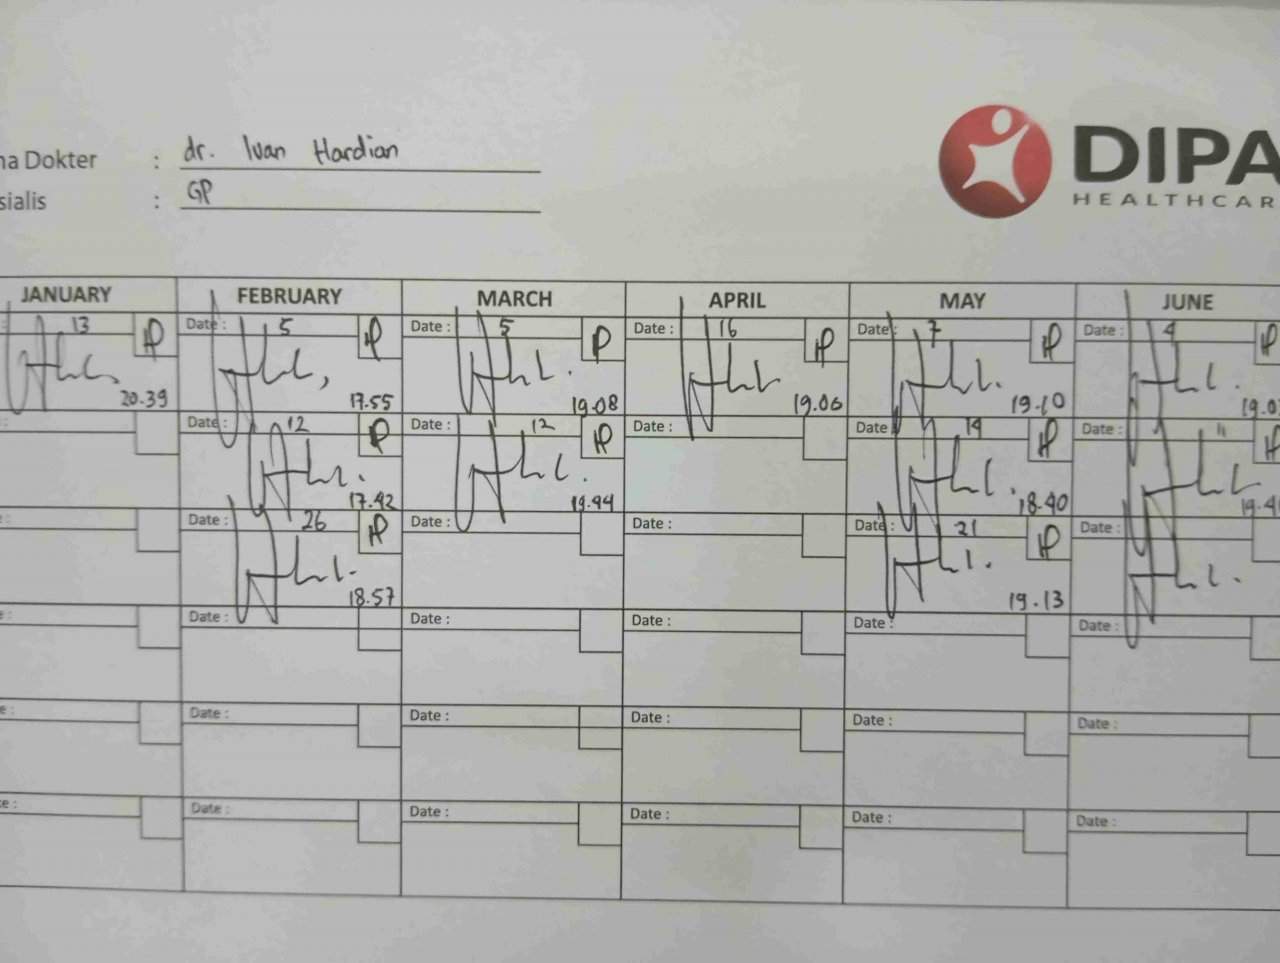 dr. Ivan Hardian
na Dokter :
DIPA
HEALTHCAR
sialis : GP
JANUARY FEBRUARY MARCH APRIL MAY JUNE
: 13 Date : 5 Date : 5 Date : 16 Date : 7 Date : 4
20.39 17.55 19.08 19.06 19.10 19.0
: Date : 12 Date : 12 Date : Date 14 Date : 11
17.42 19.44 18.40 19.4
: Date : 26 Date : Date : Date : 21 Date :
18.57 19.13
e : Date : Date : Date : Date : Date :
e : Date : Date : Date : Date : Date :
te : Date : Date : Date : Date : Date :